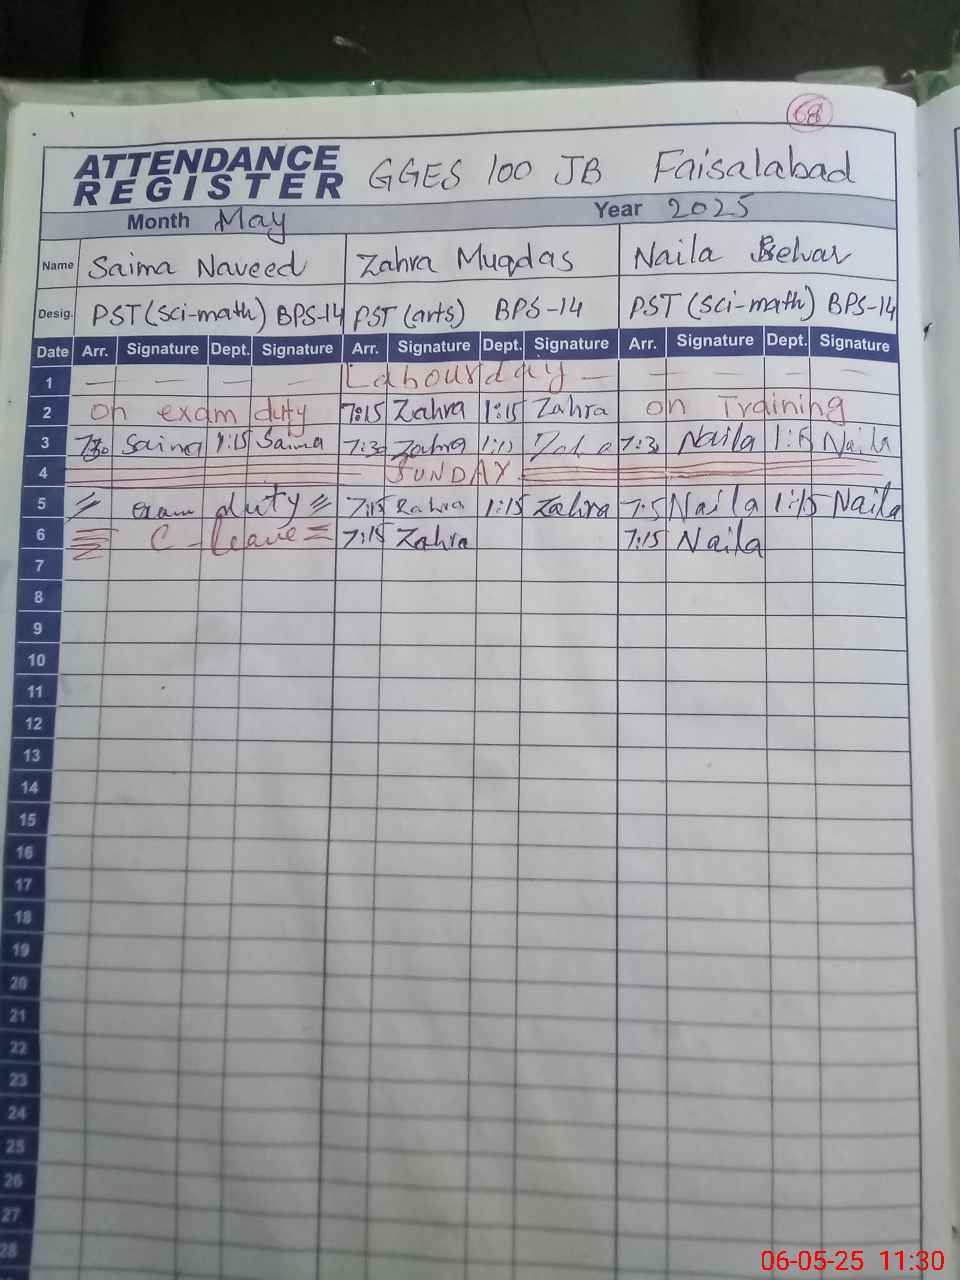 68
ATTENDANCE REGISTER GGES 100 JB Faisalabad
Month May Year 2025
Name Saima Naveed Zahra Muqdas Naila
Desig. PST (Sci-math) BPS-14 PST (arts) BPS-14 PST (Sci-math) BPS-14
Date Arr. Signature Dept. Signature Arr. Signature Dept. Signature Arr. Signature Dept. Signature
1 Labour day
2 on exam duty 7:15 Zahra 1:15 Zahra on Training
3 7:30 Saima 1:15 Saima 7:30 Zahra Zahra 7:30 Naila Naila
4 SUNDAY
5 exam duty 7:15 Zahra 1:15 Zahra Naila 1:15 Naila
6 C-leave 7:15 Zahra 7:15 Naila
7
8
9
10
11
12
13
14
15
16
17
18
19
20
21
22
23
24
25
26
27
28
06-05-25 11:30